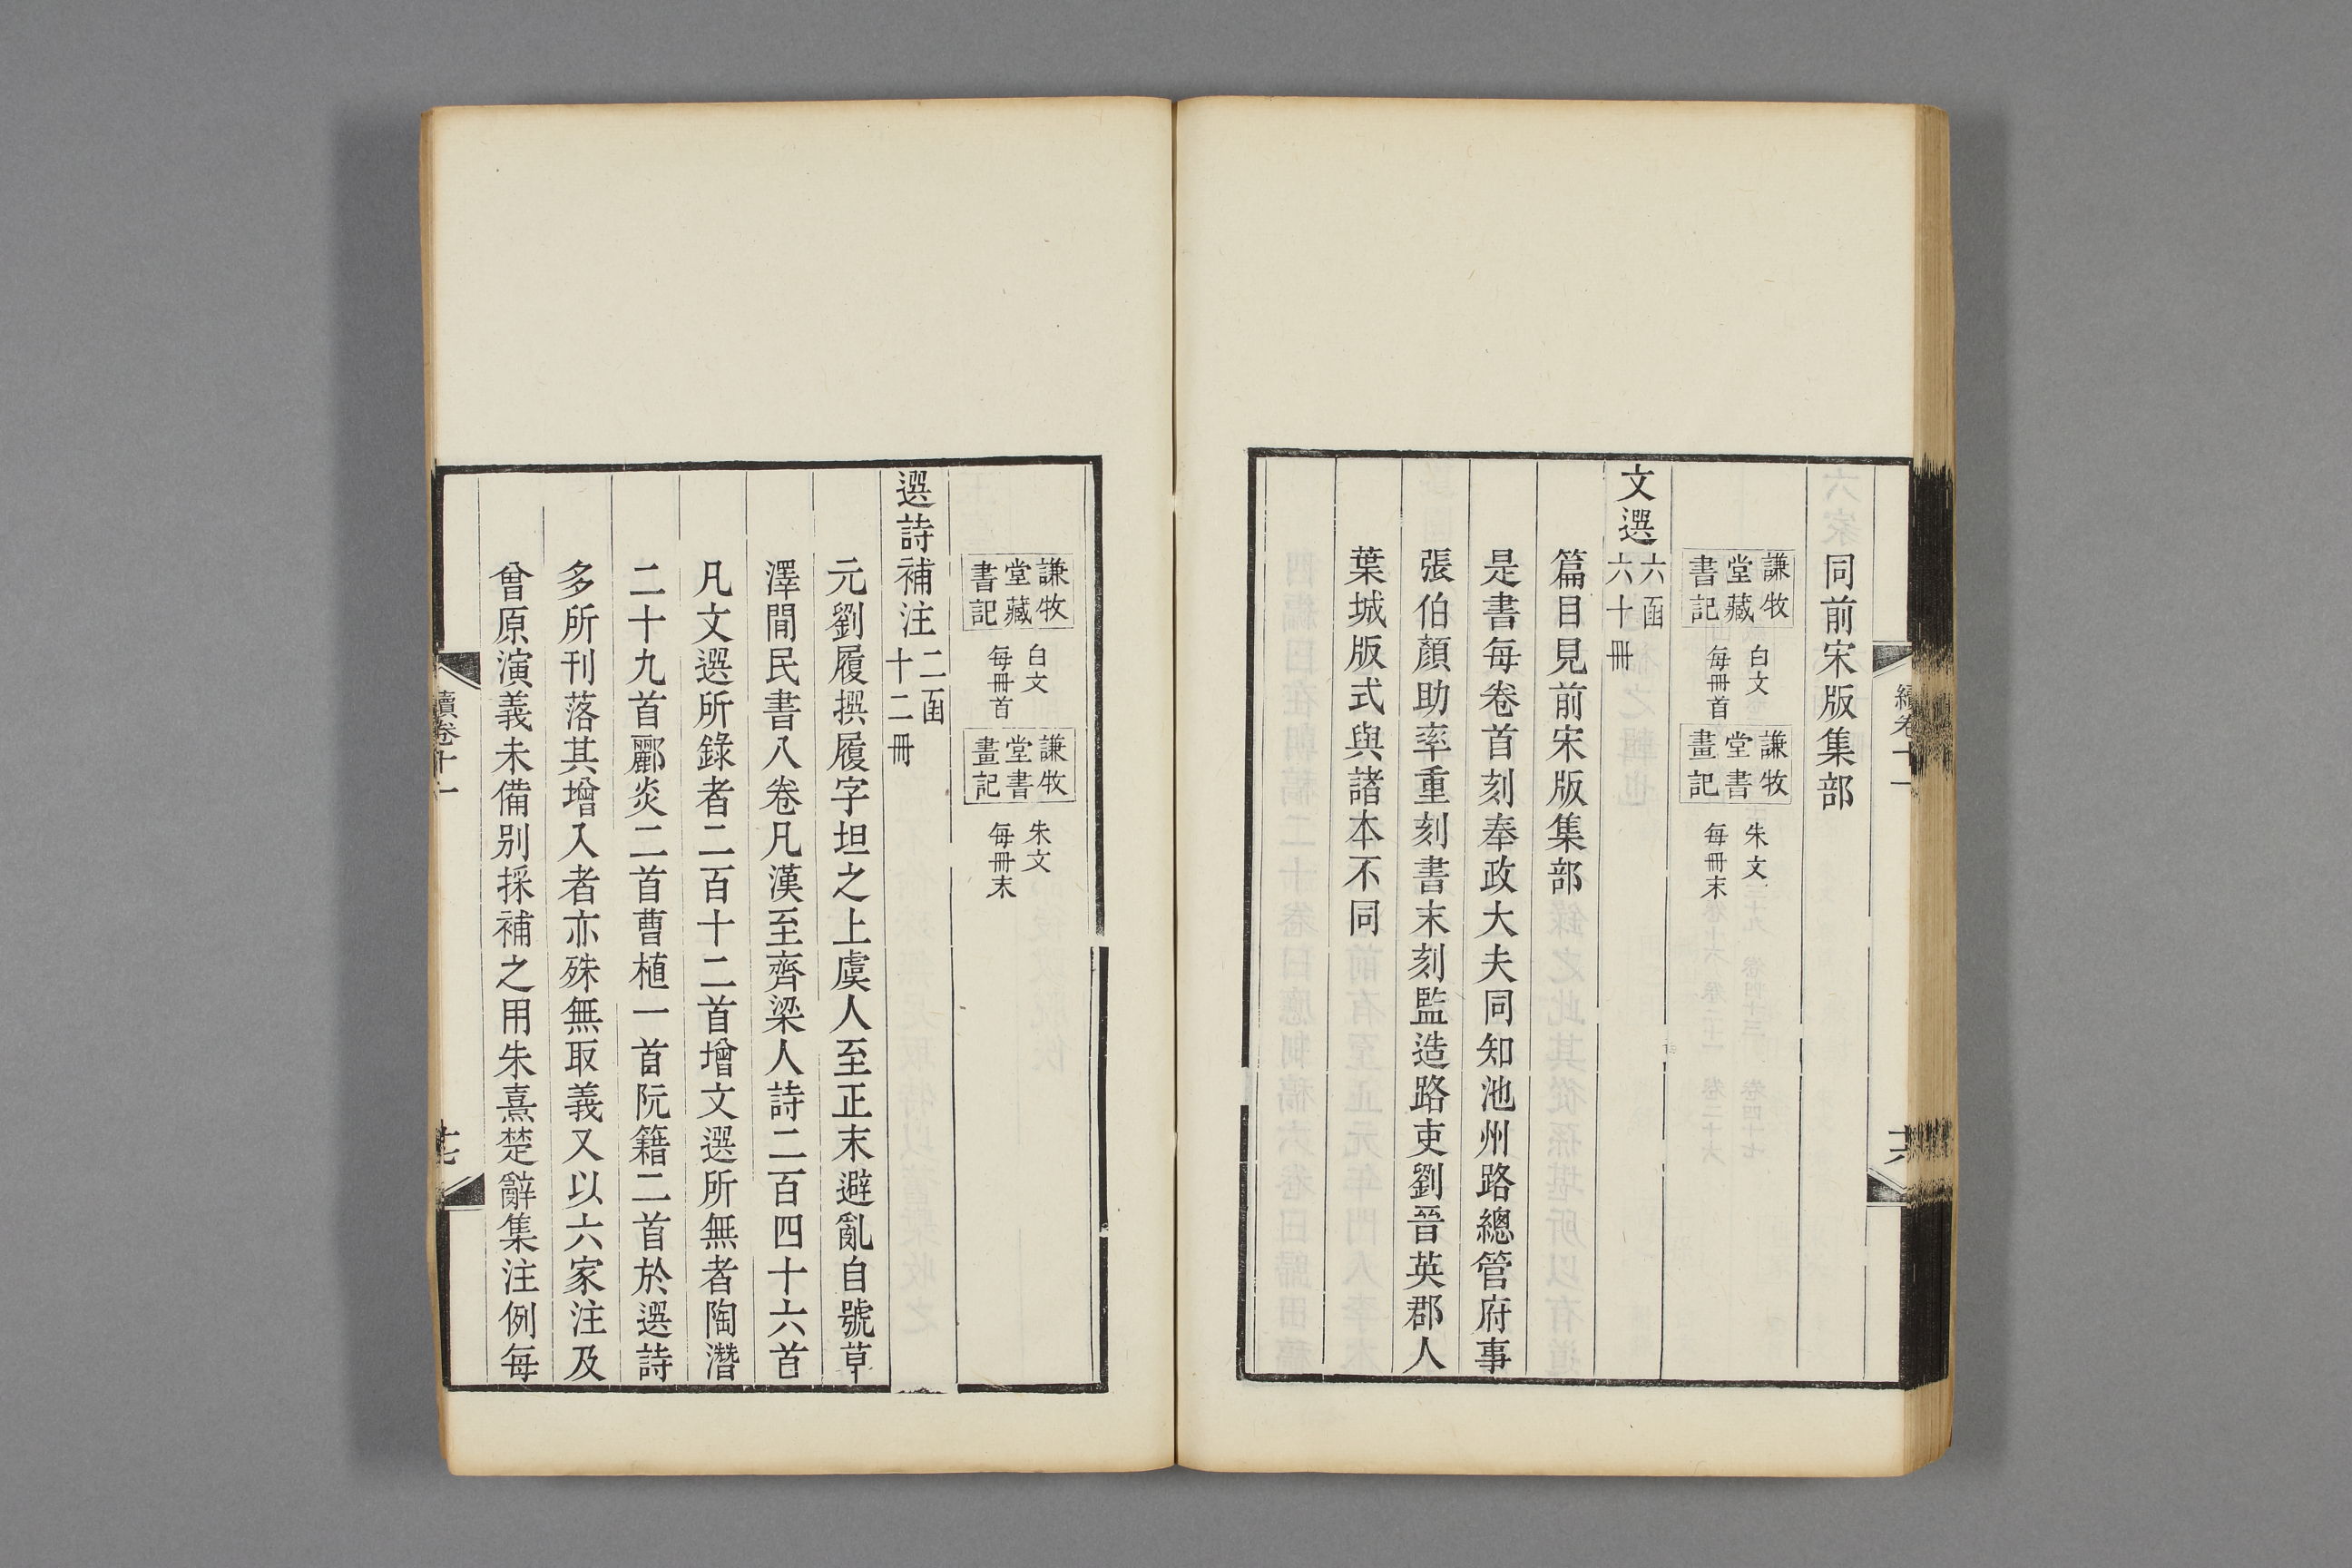 同前宋版集部
謙牧
堂藏
書記
白文
每冊首
謙牧
堂書
畫記
朱文
每冊末
文選
六函
六十冊
篇目見前宋版集部
是書每卷首刻奉政大夫同知池州路總管府事
張伯顏助率重刻書末刻監造路吏劉晉英郡人
葉城版式與諸本不同
續卷十一
謙牧
堂藏
書記
白文
每冊首
謙牧
堂書
畫記
朱文
每冊末
選詩補注
二函
十二冊
元劉履撰履字坦之上虞人至正末避亂自號草
澤閒民書八卷凡漢至齊梁人詩二百四十六首
凡文選所錄者二百十二首增文選所無者陶潛
二十九首酈炎二首曹植一首阮籍二首於選詩
多所刊落其增入者亦殊無取義又以六家注及
曾原演義未備別採補之用朱熹楚辭集注例每
續卷十一